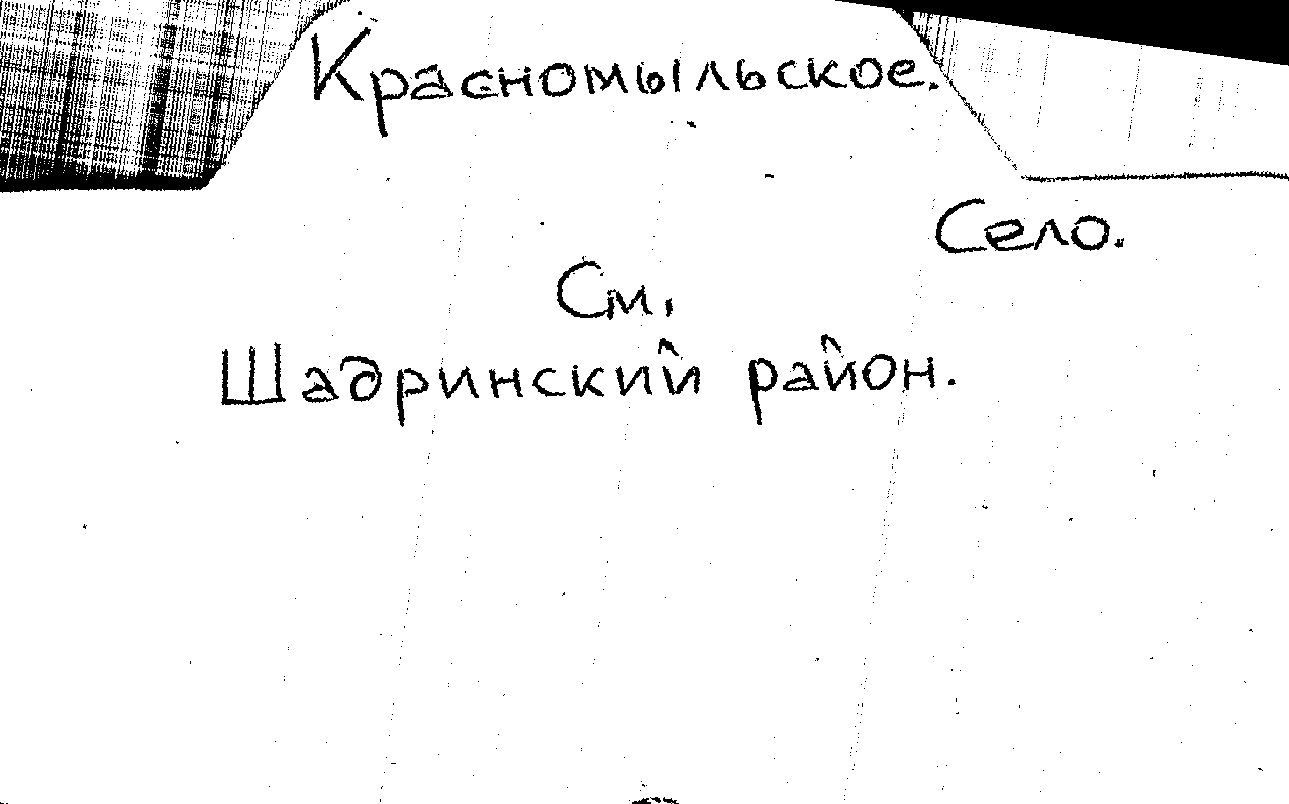 Красномыльское.
Село.
См.
Шадринский район.